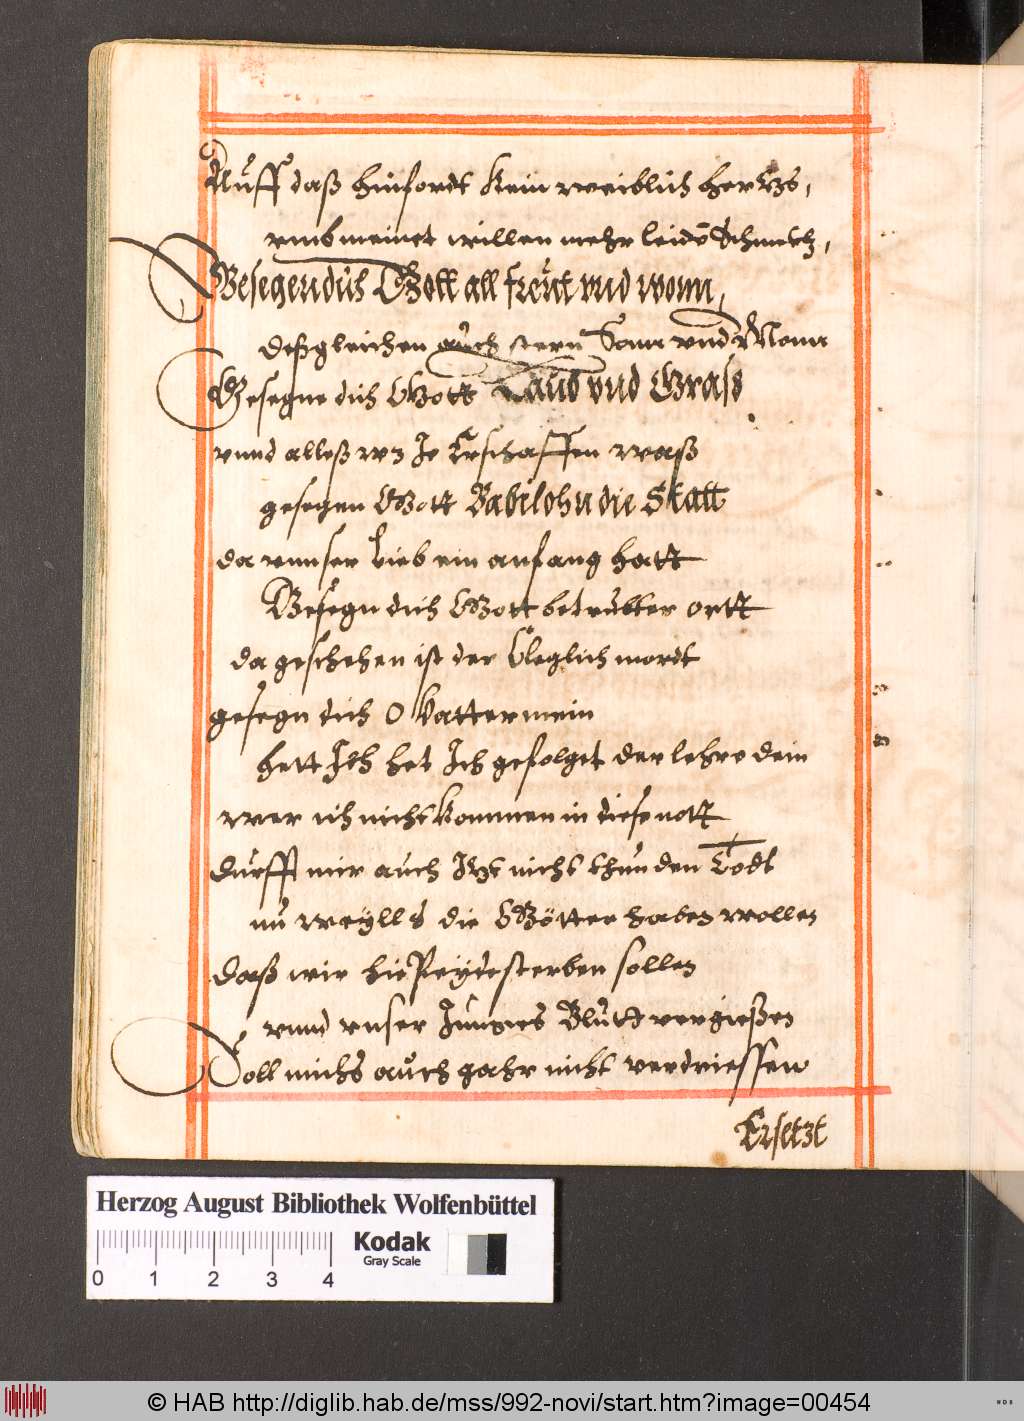 Auff daß hinfordt kein weiblich hertz,
vmb meinet willen mehr leide Schmertz,
Gesegen dich Gott all freut vnd wonn,
deßgleichen auch stern Sonn vnd Monn
Gesegne dich Gott Laub vnd Graß
vnnd alleß wz Je Erschaffen waß
gesegen Gott Babilohn die Statt
da vnnser lieb ein anfang hatt
Gesegn dich Gott betrubter ortt
da geschehen ist der kleglich mordt
gesegn dich O Vatter mein
hett Ich het Ich gefolget der lehre dein
wer ich nicht kommen in diese nott
durfft mir auch Itzt nicht thun den Todt
nu weylls die Götter haben wollen
daß wir hie Beyde sterben sollen
vnnd vnser Junges Blutt vergießen
Soll michs auch gahr nicht verdriessen
Ersetzt
Herzog August Bibliothek Wolfenbüttel
Kodak
Gray Scale
0 1 2 3 4
© HAB http://diglib.hab.de/mss/992-novi/start.htm?image=00454